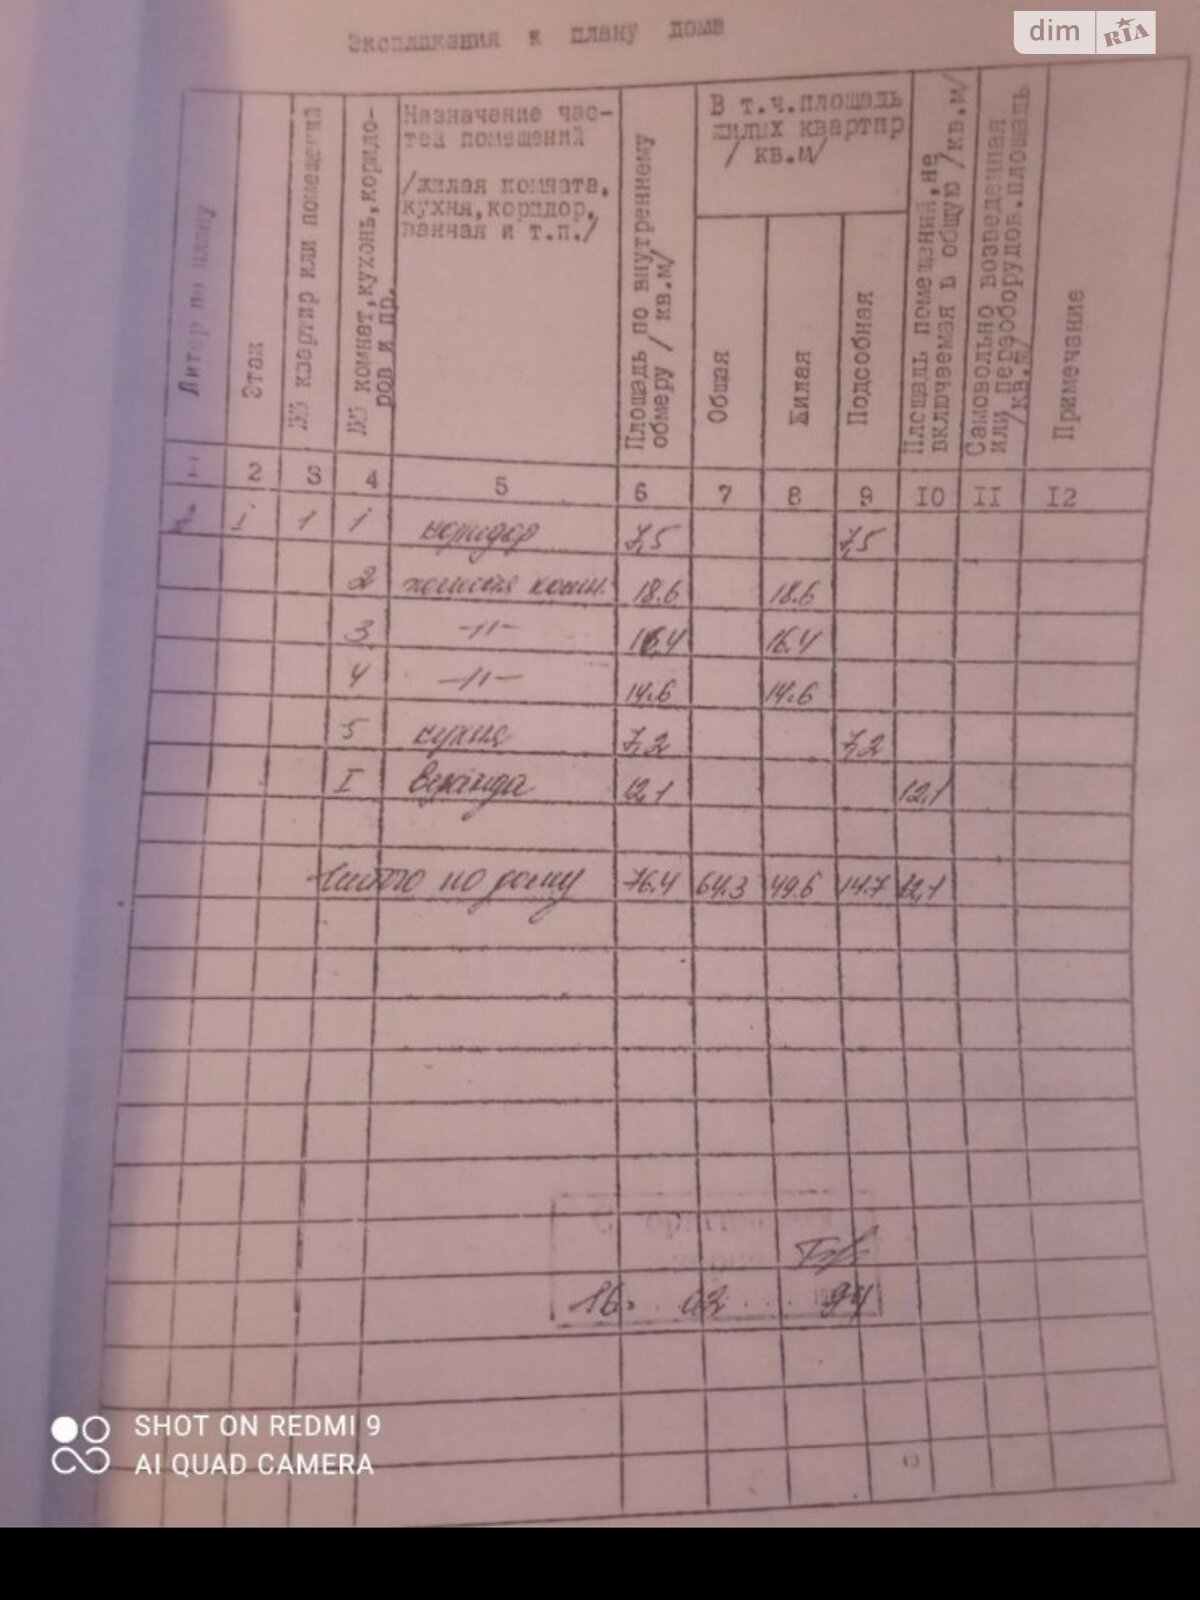 dim RIA
Экспликация к плану дома
Литер по плану
Этаж
№№ квартир или помещений
№№ комнат,кухонь,коридо-
ров и пр.
Назначение час-
тей помещений
/жилая комната,
кухня,коридор,
ванная и т.п./
Площадь по внутреннему
обмеру / кв.м/
В т.ч.площадь
жилых квартир
/ кв.м/
Общая
Жилая
Подсобная
Площадь помещений,не
включаемая в общую /кв.м/
Самовольно возведенная
или переоборудов.площадь
/кв.м/
Примечание
1 2 3 4 5 6 7 8 9 10 11 12
I 1 1 коридор 7,5 7,5
2 жилая комн. 18.6 18.6
3 -"- 16,4 16.4
4 -"- 14.6 14.6
5 кухня 7,2 7,2
I веранда 12,1 12,1
Итого по дому 76.4 64.3 49.6 14.7 12,1
16. 02 94
SHOT ON REDMI 9
AI QUAD CAMERA